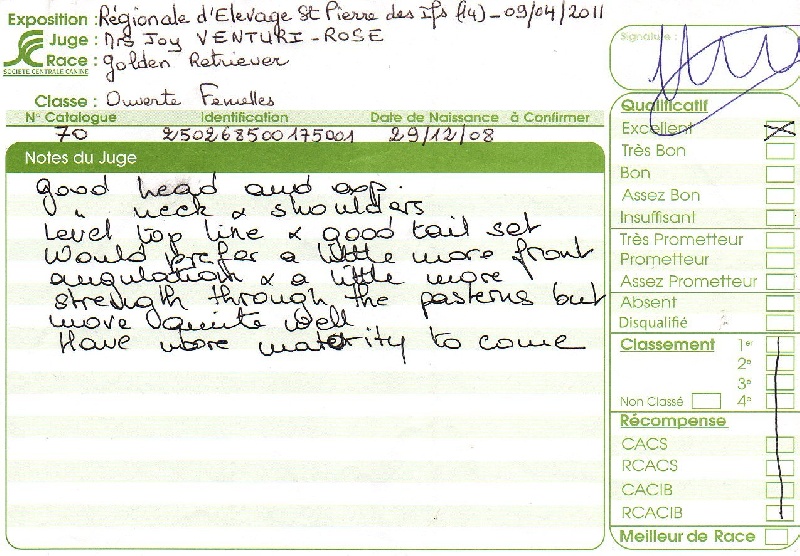 Exposition : Régionale d'Elevage St Pierre des Ifs (14) - 09/04/2011
Juge : Mrs Joy VENTURI - ROSE
Race : Golden Retriever
SOCIÉTÉ CENTRALE CANINE
Classe : Ouverte Femelles
N° Catalogue Identification Date de Naissance à Confirmer
70 250268500175001 29/12/08
Notes du Juge
good head and exp.
" neck & shoulders
Level top line & good tail set
Would prefer a little more front
angulation & a little more
strength through the pasterns but
move quite well
Have more maturity to come
Signature :
Qualificatif
Excellent
Très Bon
Bon
Assez Bon
Insuffisant
Très Prometteur
Prometteur
Assez Prometteur
Absent
Disqualifié
Classement 1er
2e
3e
Non Classé 4e
Récompense
CACS
RCACS
CACIB
RCACIB
Meilleur de Race